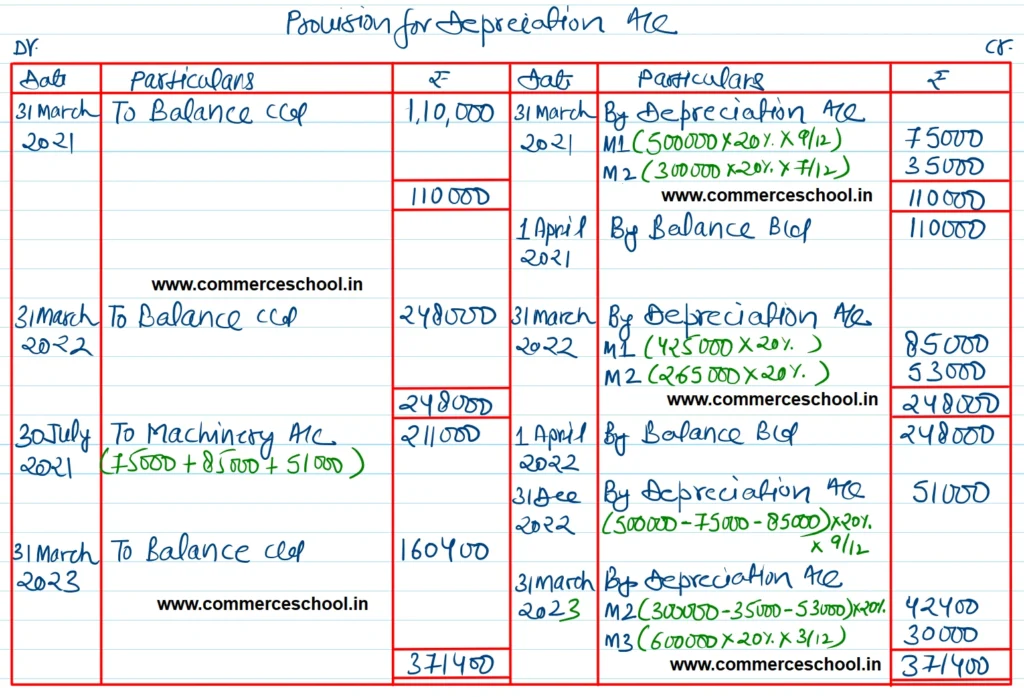 Provision for Depreciation A/c
Dr.
Cr.
Date Particulars ₹ Date Particulars ₹
31 March To Balance c/d 1,10,000 31 March By Depreciation A/c
2021 2021 M1 (500000 x 20% x 9/12) 75000
M2 (300000 x 20% x 7/12) 35000
110000 www.commerceschool.in 110000
1 April By Balance B/d 110000
2021
www.commerceschool.in
31 March To Balance c/d 248000 31 March By Depreciation A/c
2022 2022 M1 (425000 x 20% ) 85000
M2 (265000 x 20% ) 53000
248000 www.commerceschool.in 248000
30 July To Machinery A/c 211000 1 April By Balance B/d 248000
2021 (75000 + 85000 + 51000) 2022
31 Dec By Depreciation A/c 51000
2022 (500000 - 75000 - 85000) x 20%
x 9/12
31 March To Balance c/d 160400
2023 31 March By Depreciation A/c
www.commerceschool.in 2023 M2 (300000 - 35000 - 53000) x 20% 42400
M3 (600000 x 20% x 3/12) 30000
371400 www.commerceschool.in 371400